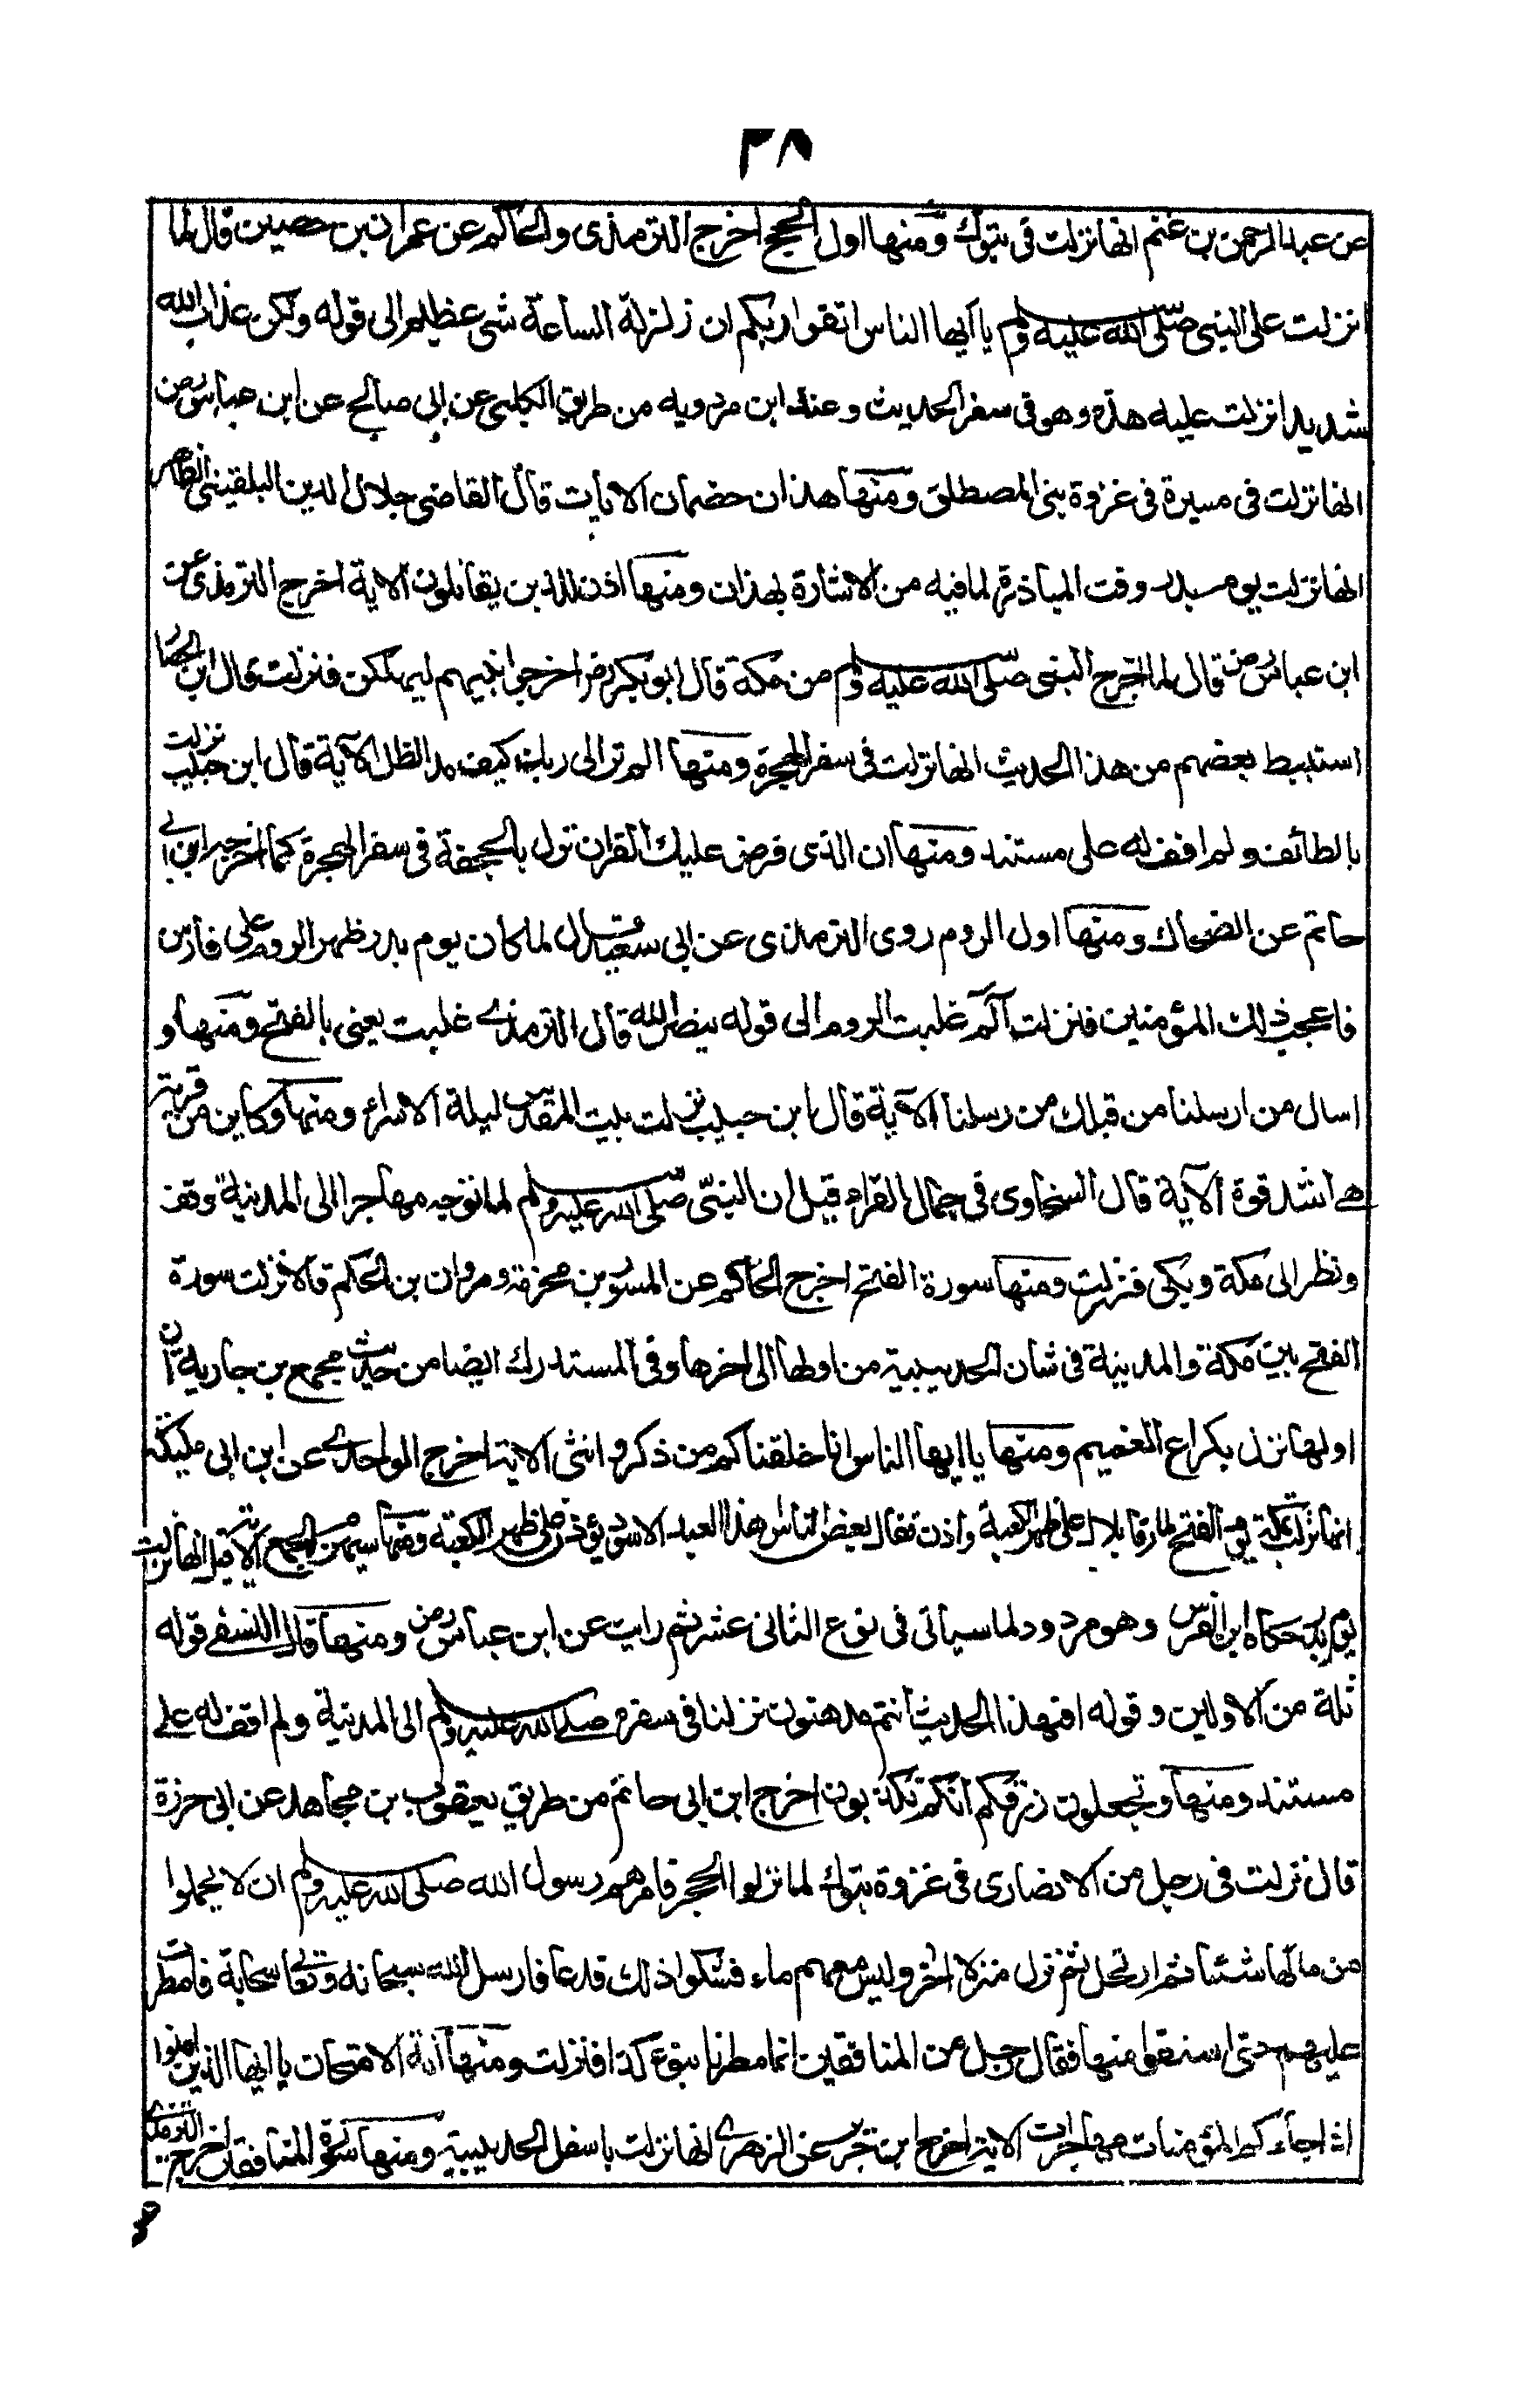 ٣٨
عن عبد الرحمن بن غنم انها نزلت فى تبوك ومنها اول الحج اخرج الترمذى والحاكم عن عمران بن حصين قال لما
انزلت على النبى صلى الله عليه وسلم يا ايها الناس اتقوا ربكم ان زلزلة الساعة شى عظيم الى قوله ولكن عذاب الله
شديد انزلت عليه هذه وهو فى سفر الحديث وعند ابن مردويه من طريق الكلبى عن ابى صالح عن ابن عباس رض
انها نزلت فى مسيرة فى غزوة بنى المصطلق ومنها هذان خصمان الايات قال القاضى جلال الدين البلقينى الظاهر
انها نزلت يوم بدر وقت المبارزة لما فيه من الاشارة بهذان ومنها اذن للذين يقاتلون الاية اخرج الترمذى عن
ابن عباس رض قال لما اخرج النبى صلى الله عليه وسلم من مكة قال ابو بكر رض اخرجوا نبيهم ليهلكن فنزلت قال ابن الحصار
استنبط بعضهم من هذا الحديث انها نزلت فى سفر الهجرة ومنها الم تر الى ربك كيف مد الظل الآية قال ابن حبيب نزلت
بالطائف ولم اقف له على مستند ومنها ان الذى فرض عليك القران نزل بالجحفة فى سفر الهجرة كما اخرجه ابن ابى
حاتم عن الضحاك ومنها اول الروم روى الترمذى عن ابى سعيد قال لما كان يوم بدر ظهر الروم على فارس
فاعجب ذلك المؤمنين فنزلت آلم غلبت الروم الى قوله بنصر الله قال الترمذى غلبت يعنى بالفتح ومنها و
اسال من ارسلنا من قبلك من رسلنا الآية قال ابن حبيب نزلت ببيت المقدس ليلة الاسراء ومنها وكاين من قرية
هى اشد قوة الآية قال السخاوى فى جمال القراء قيل ان النبى صلى الله عليه وسلم لما توجه مهاجرا الى المدينة وقف
ونظر الى مكة وبكى فنزلت ومنها سورة الفتح اخرج الحاكم عن المسور بن مخرمة ومروان بن الحكم قالا نزلت سورة
الفتح بين مكة والمدينة فى شان الحديبية من اولها الى اخرها وفى المستدرك ايضا من حديث مجمع بن جارية ان
اولها نزل بكراع الغميم ومنها يا ايها الناس انا خلقناكم من ذكر و انثى الاية اخرج الواحدى عن ابن ابى مليكة
انها نزلت بمكة يوم الفتح لما رقا بلال على ظهر الكعبة واذن فقال بعض الناس هذا العبد الاسود يؤذن على ظهر الكعبة ومنها سيهزم الجمع الاية قيل انها نزلت
يوم بدر حكاه ابن الفرس وهو مردود لما سياتى فى نوع الثانى عشر ثم رايت عن ابن عباس رض ومنها قال النسفى قوله
ثلة من الاولين وقوله افبهذا الحديث أنتم مدهنون نزلنا فى سفره صلى الله عليه وسلم الى المدينة ولم اقف له على
مستند ومنها وتجعلون رزقكم انكم تكذبون اخرج ابن ابى حاتم من طريق يعقوب بن مجاهد عن ابى حرزة
قال نزلت فى رجل من الانصارى فى غزوة تبوك لما نزلوا الحجر فامرهم رسول الله صلى الله عليه وسلم ان لا يحملوا
من مائها شئنا ثم ارتحل ثم نزل منزلا اخر وليس معهم ماء فشكوا ذلك فدعا فارسل الله سبحانه وتعالى سحابة فامطرت
عليهم حتى استقوا منها فقال رجل من المنافقين انما مطرنا بنوء كذا فنزلت ومنها آية الامتحان يا ايها الذين امنوا
اذا جاءكم المؤمنات مهاجرات الاية اخرج ابن جرير عن الزهرى انها نزلت باسفل الحديبية ومنها سورة المنافقين اخرج الترمذى